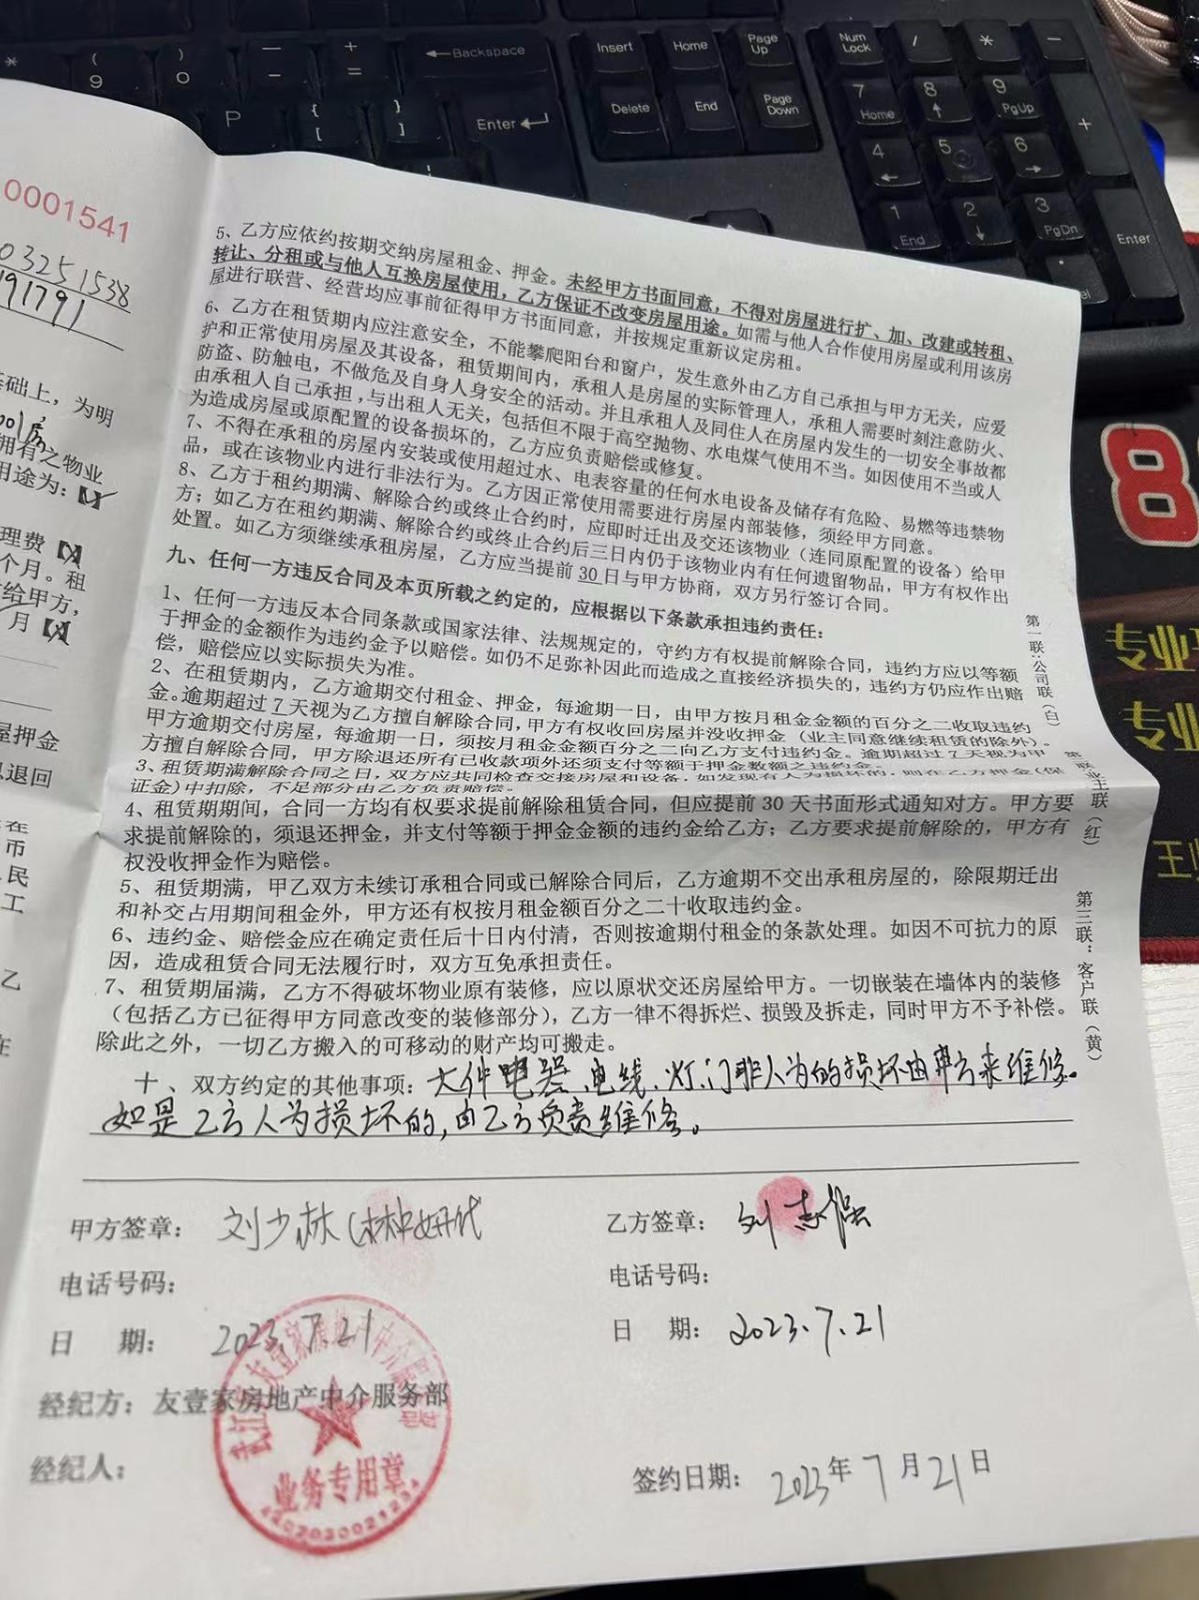 Backspace
Insert
Home
Page Up
Num Lock
/
*
-
( 9
) 0
- -
+ =
P
{ [
} ]
Enter
Delete
End
Page Down
7 Home
8
9 PgUp
+
4
5
6
1 End
2
3 PgDn
Enter
0001541
03251538
191791
基础上，为明
001房
拥有之物业
用途为：【】
理费【X】
个月。租
给甲方，
月【X】
屋押金
退回
在
币
民
工
乙
在
5、乙方应依约按期交纳房屋租金、押金。未经甲方书面同意，不得对房屋进行扩、加、改建或转租、
转让、分租或与他人互换房屋使用，乙方保证不改变房屋用途。如需与他人合作使用房屋或利用该房
屋进行联营、经营均应事前征得甲方书面同意，并按规定重新议定房租。
6、乙方在租赁期内应注意安全，不能攀爬阳台和窗户，发生意外由乙方自己承担与甲方无关，应爱
护和正常使用房屋及其设备，租赁期间内，承租人是房屋的实际管理人，承租人需要时刻注意防火、
防盗、防触电，不做危及自身人身安全的活动。并且承租人及同住人在房屋内发生的一切安全事故都
由承租人自己承担，与出租人无关，包括但不限于高空抛物、水电煤气使用不当。如因使用不当或人
为造成房屋或原配置的设备损坏的，乙方应负责赔偿或修复。
7、不得在承租的房屋内安装或使用超过水、电表容量的任何水电设备及储存有危险、易燃等违禁物
品，或在该物业内进行非法行为。乙方因正常使用需要进行房屋内部装修，须经甲方同意。
8、乙方于租约期满、解除合约或终止合约时，应即时迁出及交还该物业（连同原配置的设备）给甲
方；如乙方在租约期满、解除合约或终止合约后三日内仍于该物业内有任何遗留物品，甲方有权作出
处置。如乙方须继续承租房屋，乙方应当提前30日与甲方协商，双方另行签订合同。
九、任何一方违反合同及本页所载之约定的，应根据以下条款承担违约责任：
1、任何一方违反本合同条款或国家法律、法规规定的，守约方有权提前解除合同，违约方应以等额
于押金的金额作为违约金予以赔偿。如仍不足弥补因此而造成之直接经济损失的，违约方仍应作出赔
偿，赔偿应以实际损失为准。
2、在租赁期内，乙方逾期交付租金、押金，每逾期一日，由甲方按月租金金额的百分之二收取违约
金。逾期超过7天视为乙方擅自解除合同，甲方有权收回房屋并没收押金（业主同意继续租赁的除外）。
甲方逾期交付房屋，每逾期一日，须按月租金金额百分之二向乙方支付违约金。逾期超过7天视为甲
方擅自解除合同，甲方除退还所有已收款项外还须支付等额于押金数额之违约金。
3、租赁期满解除合同之日，双方应共同检查交接房屋和设备，如发现有人为损坏的，则在乙方押金（保
证金）中扣除，不足部分由乙方负责赔偿。
4、租赁期期间，合同一方均有权要求提前解除租赁合同，但应提前30天书面形式通知对方。甲方要
求提前解除的，须退还押金，并支付等额于押金金额的违约金给乙方；乙方要求提前解除的，甲方有
权没收押金作为赔偿。
5、租赁期满，甲乙双方未续订承租合同或已解除合同后，乙方逾期不交出承租房屋的，除限期迁出
和补交占用期间租金外，甲方还有权按月租金额百分之二十收取违约金。
6、违约金、赔偿金应在确定责任后十日内付清，否则按逾期付租金的条款处理。如因不可抗力的原
因，造成租赁合同无法履行时，双方互免承担责任。
7、租赁期届满，乙方不得破坏物业原有装修，应以原状交还房屋给甲方。一切嵌装在墙体内的装修
（包括乙方已征得甲方同意改变的装修部分），乙方一律不得拆烂、损毁及拆走，同时甲方不予补偿。
除此之外，一切乙方搬入的可移动的财产均可搬走。
十、双方约定的其他事项：大件电器、电线、灯、门非人为的损坏由甲方来维修。
如是乙方人为损坏的，由乙方负责维修。
第一联：公司联（白）
第二联业主联（红）
第三联：客户联（黄）
甲方签章：刘少林
乙方签章：刘志强
电话号码：
电话号码：
日 期：2023.7.21
日 期：2023.7.21
经纪方：友壹家房地产中介服务部
经纪人：
签约日期：2023年7月21日
业务专用章
专业
专业